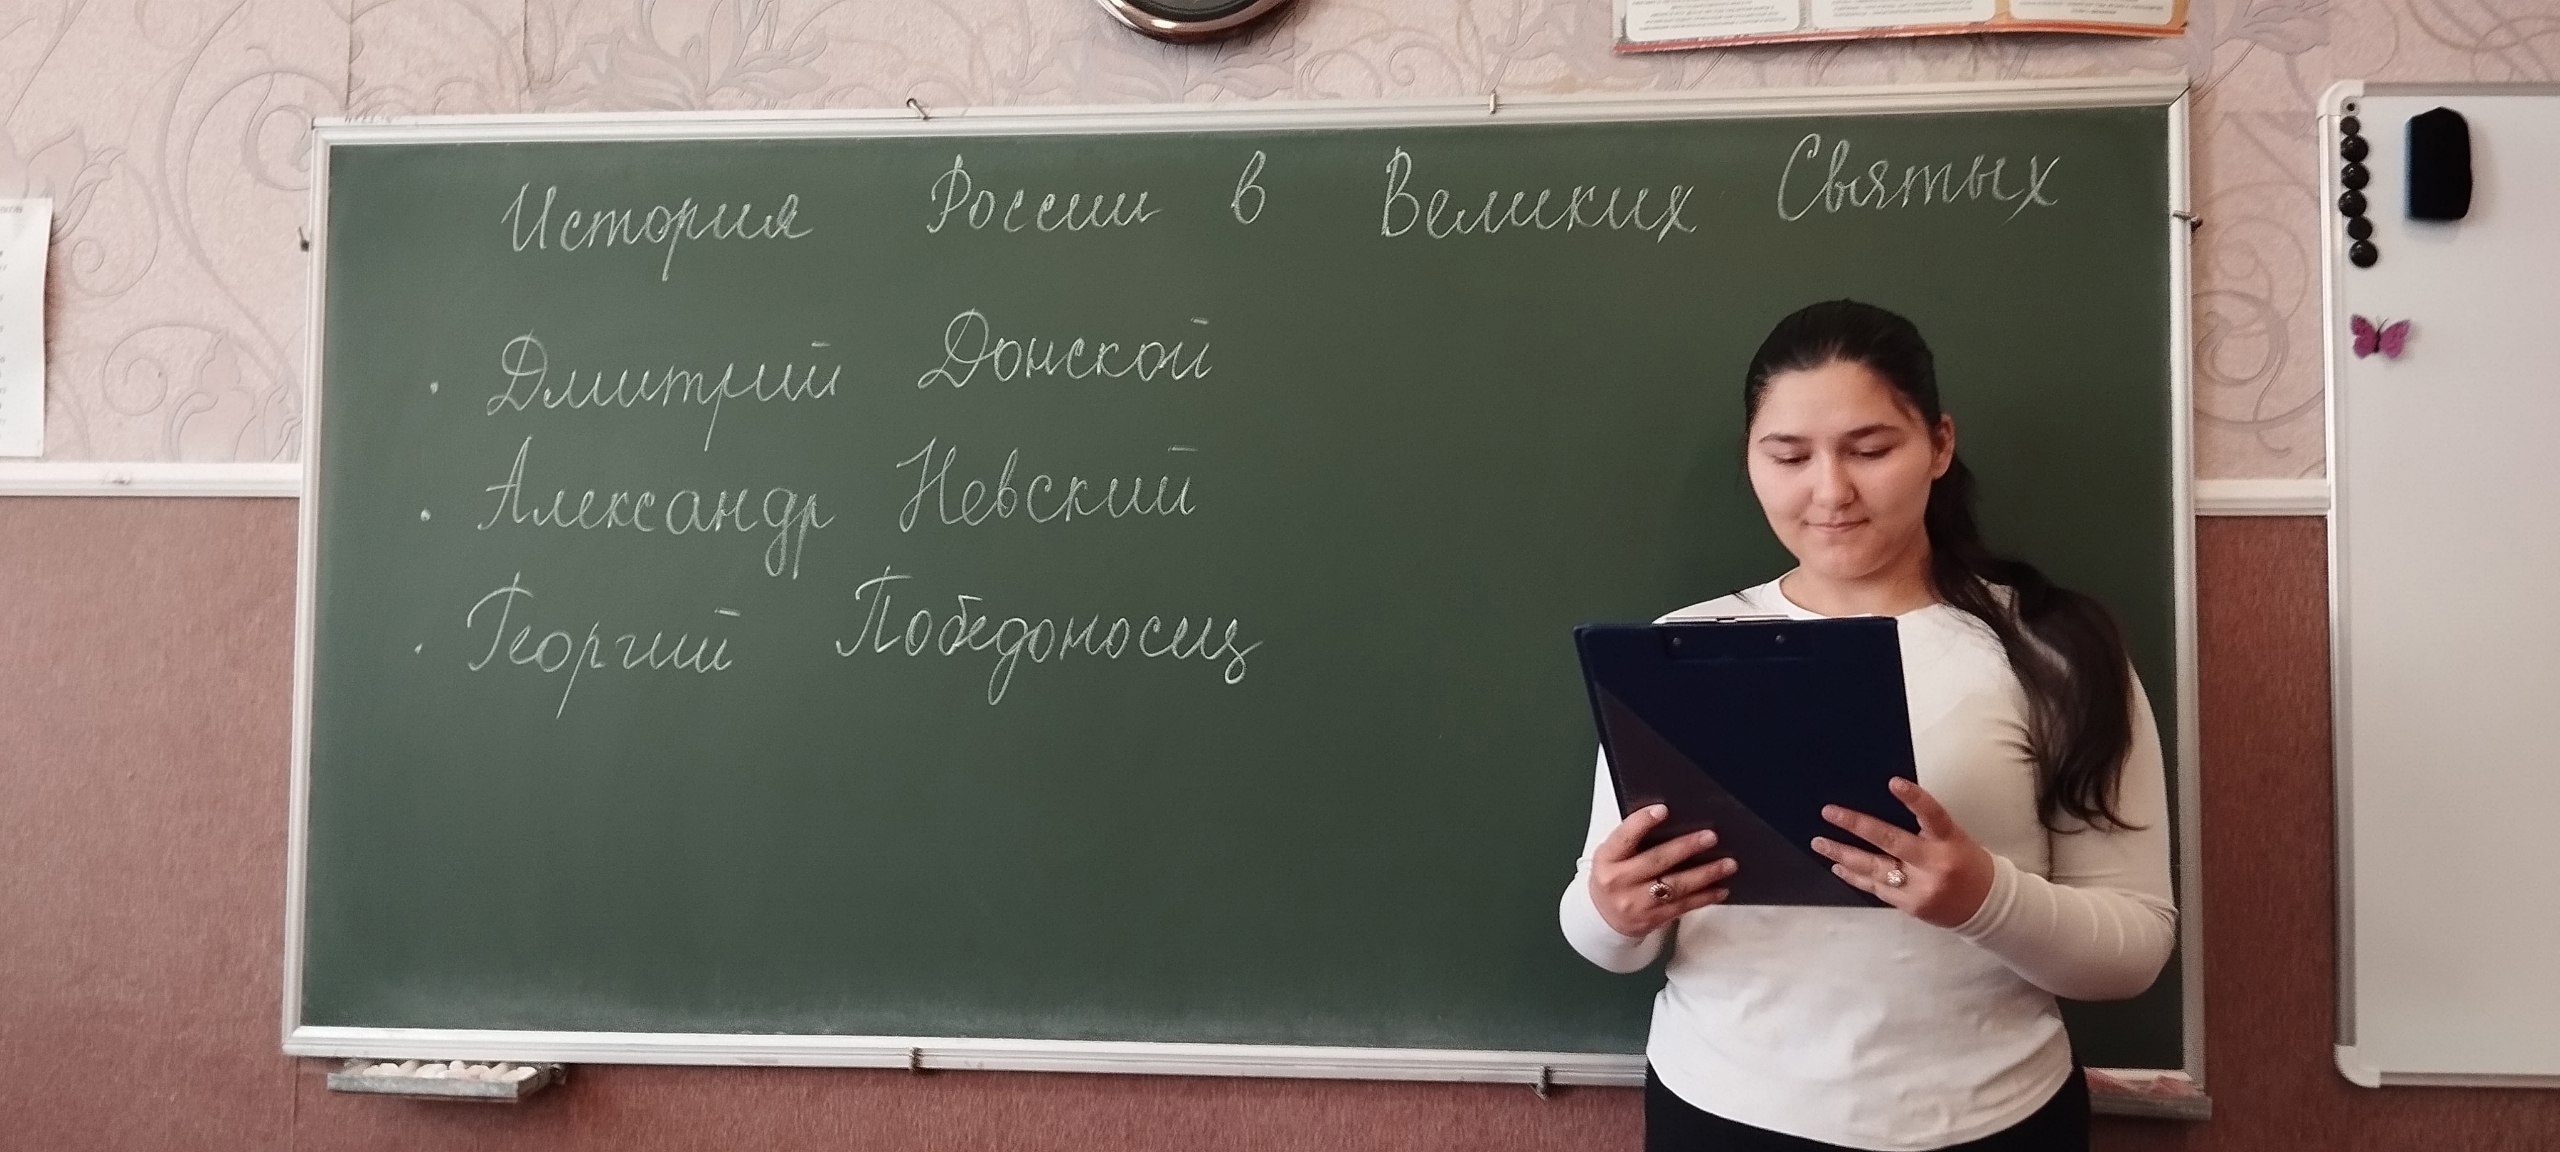 История России в Великих Святых
· Дмитрий Донской
· Александр Невский
· Георгий Победоносец